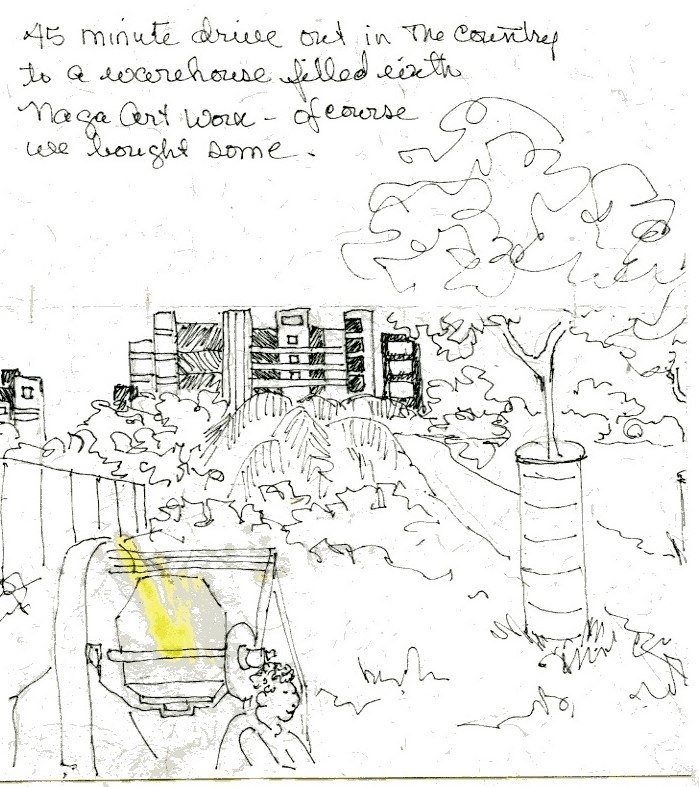 45 minute drive out in The country
to a warehouse filled with
Naga Art Work - of course
we bought some.